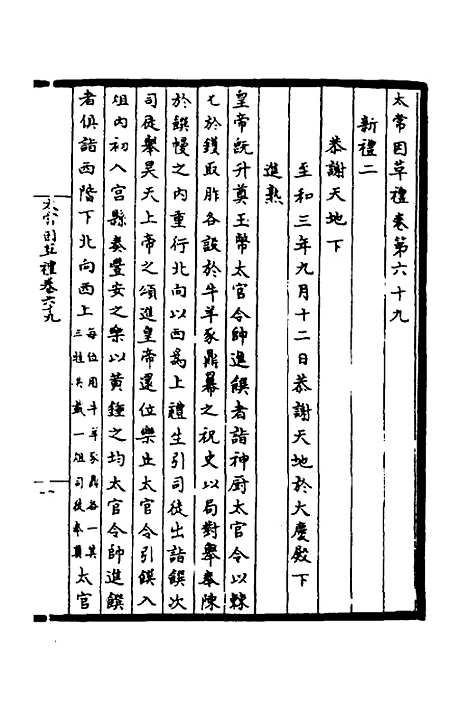 太常因革禮卷第六十九
新禮二
恭謝天地下
至和三年九月十二日恭謝天地於大慶殿下
進熟
皇帝既升奠玉幣太官令帥進饌者詣神厨太官令以棘
匕於鑊取胙各設於牛羊豕鼎羃之祝史以局對舉奉陳
於饌幔之內重行北向以西爲上禮生引司徒出詣饌次
司徒舉昊天上帝之頌進皇帝還位樂止太官令引饌入
俎內初入宫縣奏豐安之樂以黃鍾之均太官令帥進饌
者俱詣西階下北向西上每位用牛羊豕鼎各一其三牲共載一俎司徒奉奠太官
太常因革禮卷六十九
一